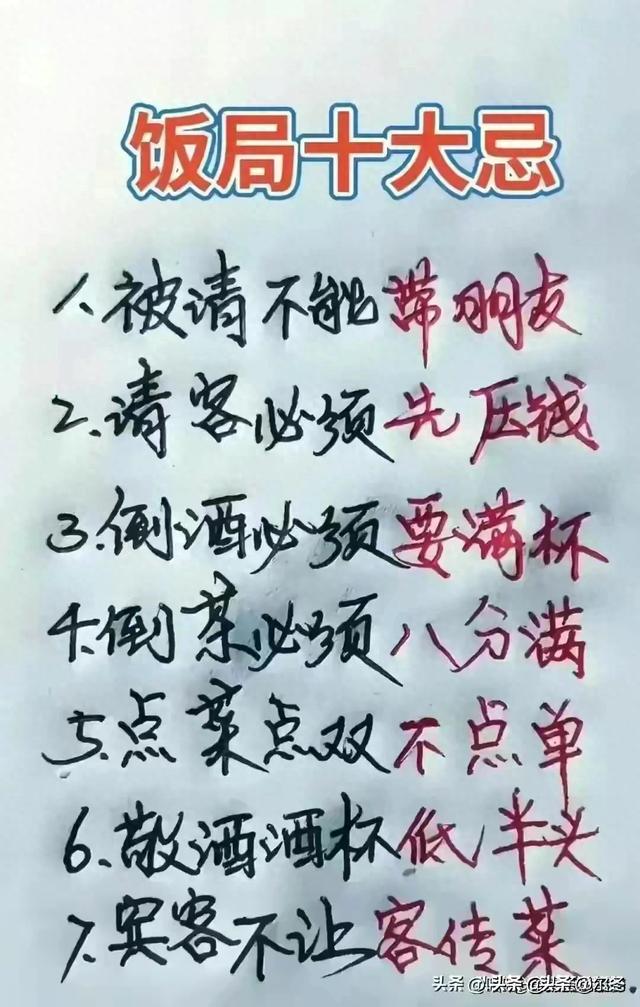 饭局十大忌
1.被请不能带朋友
2.请客必须先压钱
3.倒酒必须要满杯
4.倒茶必须八分满
5.点菜点双不点单
6.敬酒酒杯低半头
7.宾客不让客传菜
头条 @头条 @头条